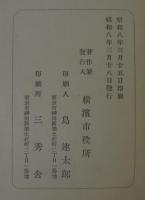 昭和八年三月廿五日印刷
昭和八年三月廿八日發行
著作兼
發行人
橫濱市役所
印刷人
島連太郎
東京市神田區美土代町二丁目一番地
印刷所
三秀舍
東京市神田區美土代町二丁目一番地